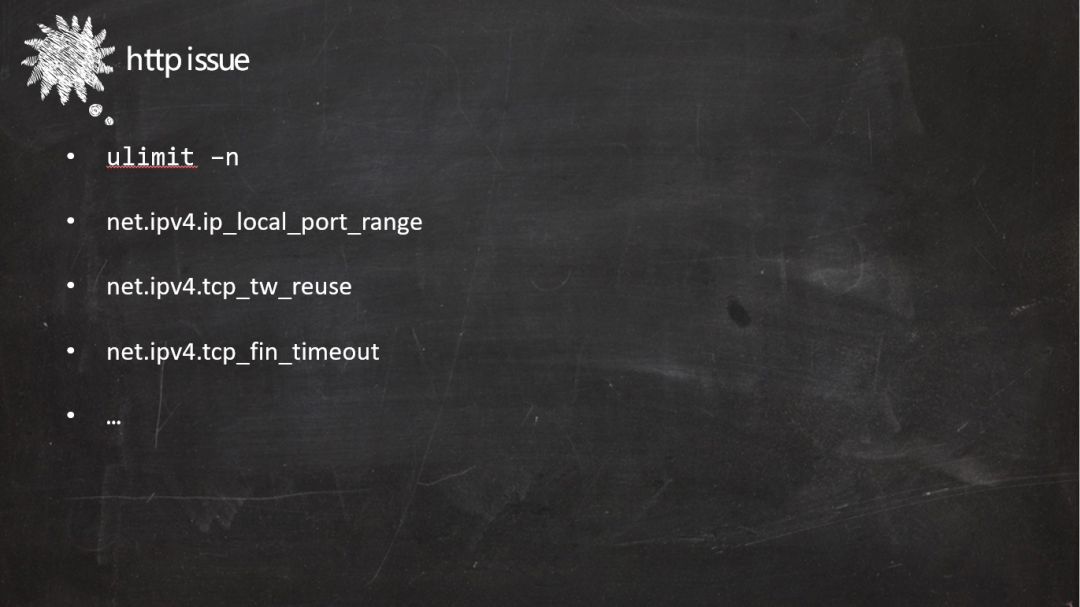 http issue
• ulimit –n
• net.ipv4.ip_local_port_range
• net.ipv4.tcp_tw_reuse
• net.ipv4.tcp_fin_timeout
• …